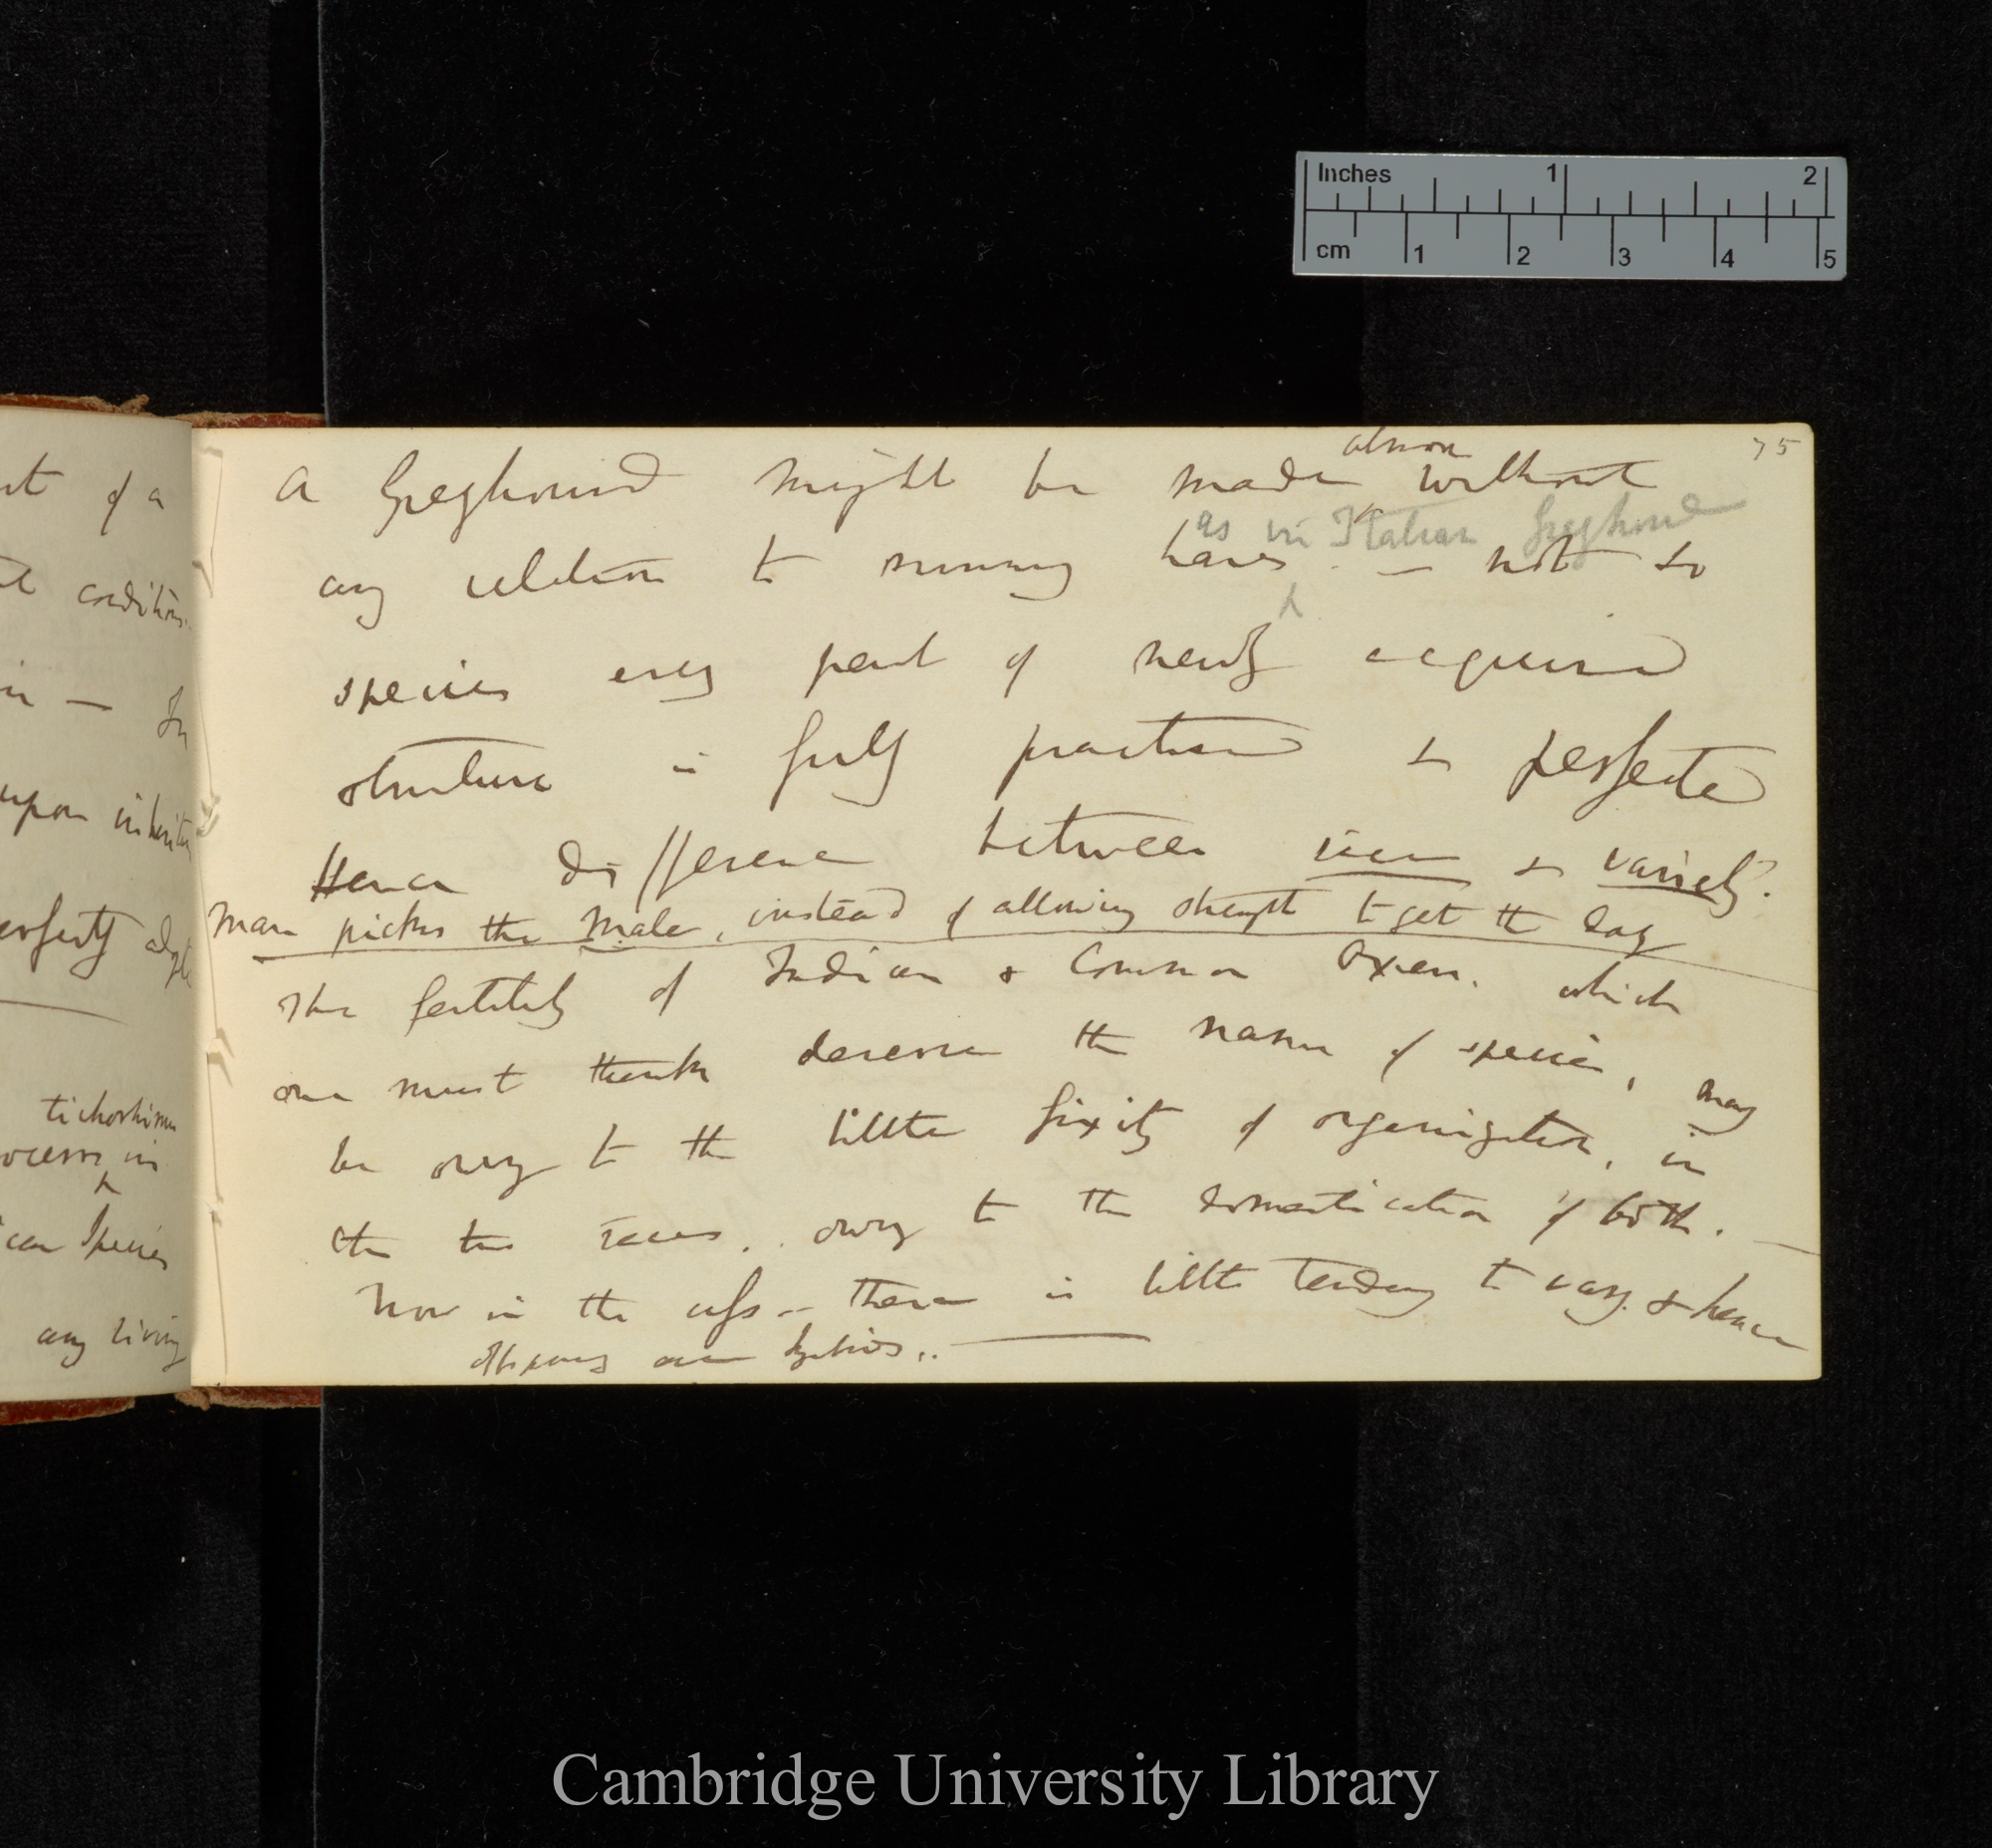 nt of a
conditions.
in — In
upon inherita
perfectly adapt
tichorhinus
in
can species
any living
75
almost
A Greyhound might be made without
as in Italian Greyhound
any relation to running hares. — not so
species every part of newly acquired
structure is fully practised & perfected
Hence difference between races & variety.
Man picks the male, instead of allowing strength to get the day
The fertility of Indian & Common Oxen. which
one must think deserve the name of species, may
be owing to the little fixity of organization, in
the two races, owing to the domestication of both. —
Now in the — there is little tendency to vary. & hence
offspring are hybrids.. —
Inches 1 2
cm 1 2 3 4 5
Cambridge University Library